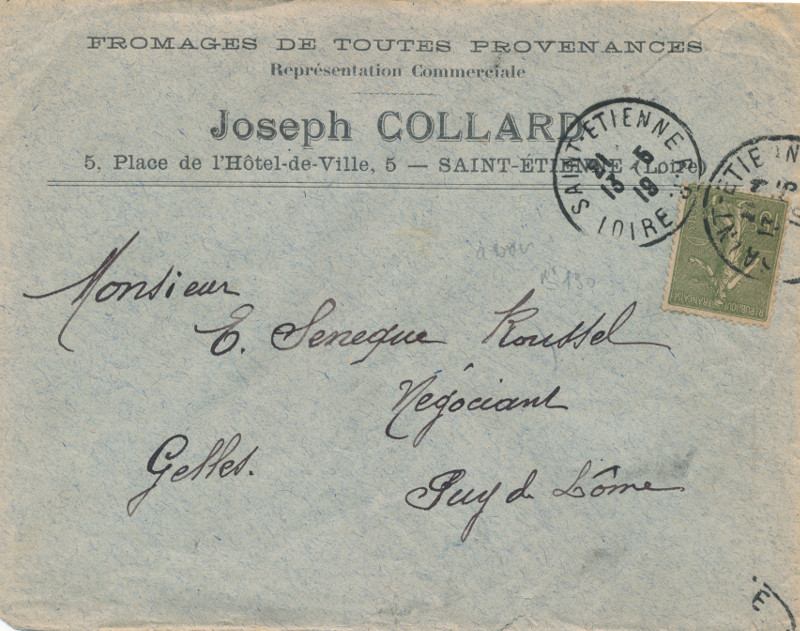 FROMAGES DE TOUTES PROVENANCES
Représentation Commerciale
Joseph COLLARD
5, Place de l'Hôtel-de-Ville, 5 — SAINT-ÉTIENNE (Loire)
SAINT-ETIENNE
21 - 5
13 19
LOIRE
REPUBLIQUE FRANÇAISE
Monsieur
E. Seneque Roussel
Négociant
Gelles.
Puy de Dôme